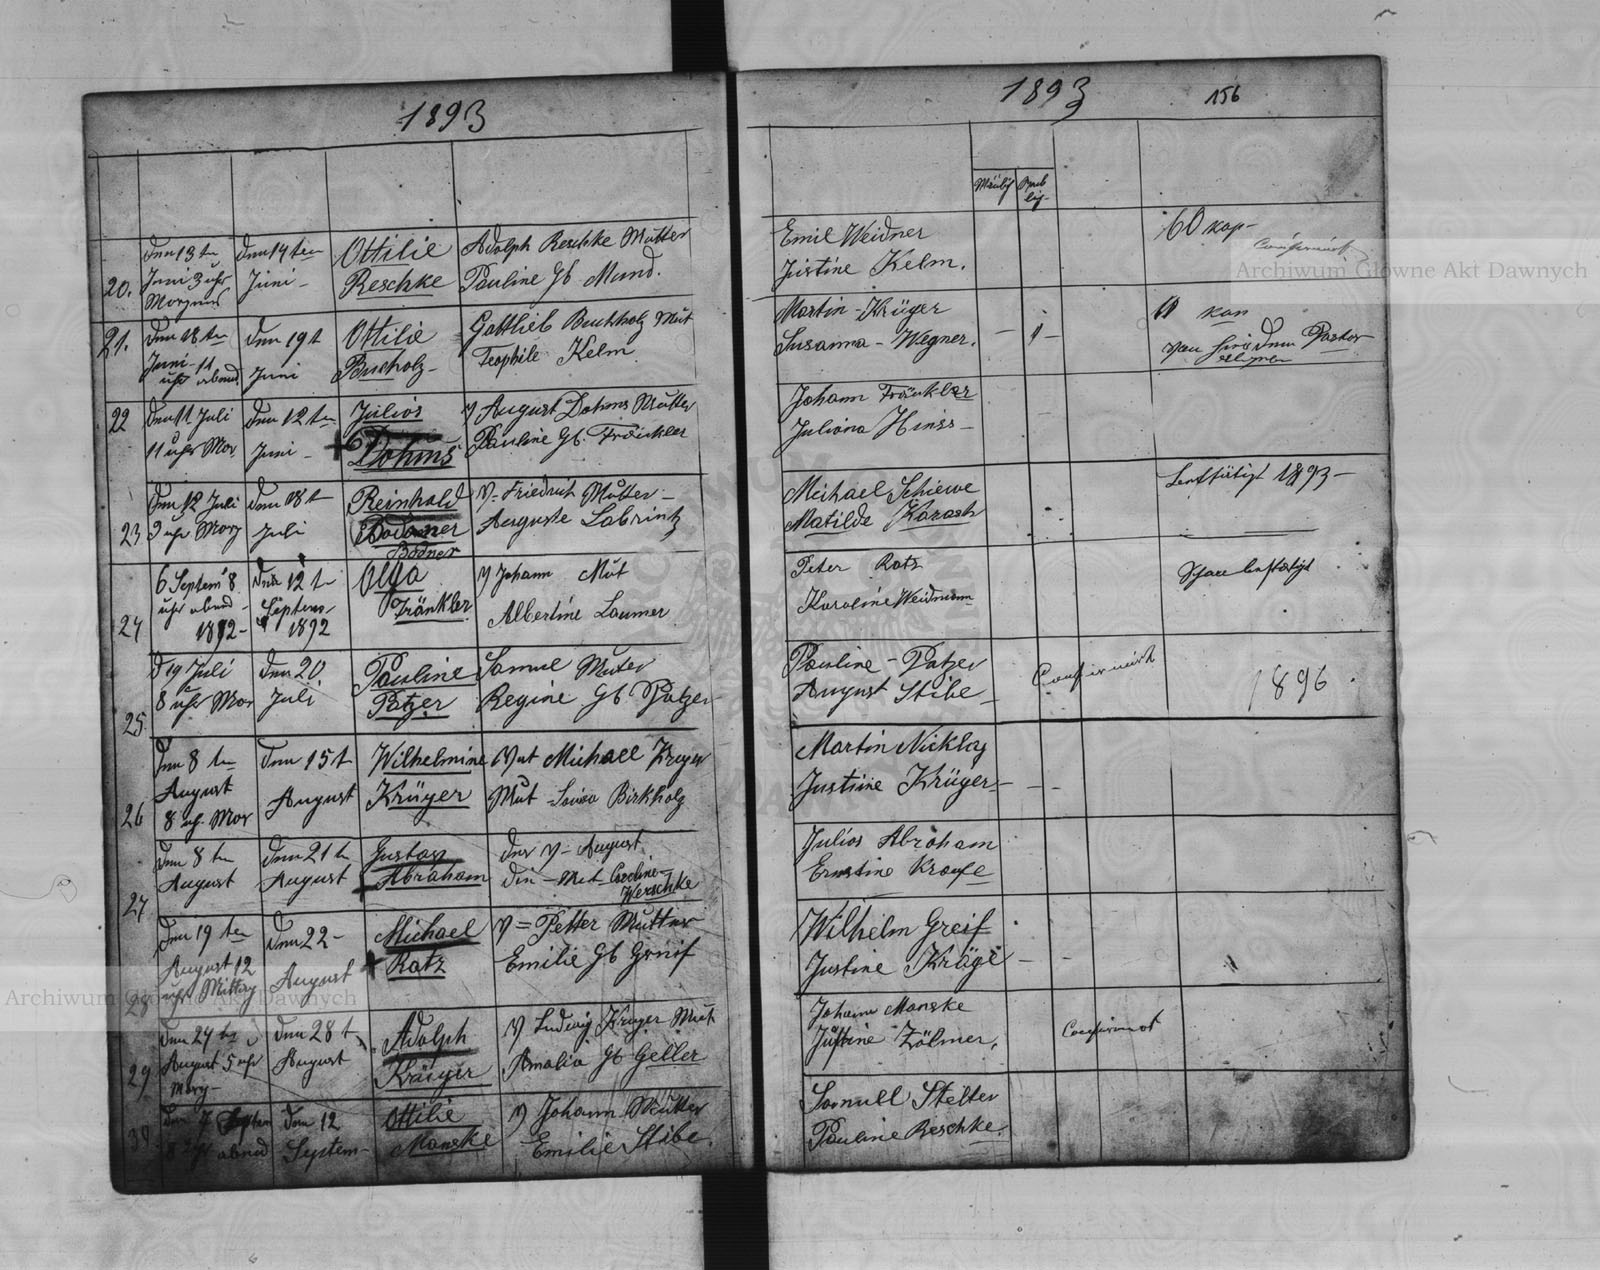 1893
20.
den 13 ten
Juni 3 uhr
Morgens
den 14 ten
Juni -
Ottilie
Reschke
Adolph Reschke Mutter
Pauline Gb Mund.
21.
den 18 ten
Juni 11
uhr abend
den 19 t
Juni
Ottilie
Bucholz-
Gottlieb Buchholz Mut
Teophile Kelm
22
den 11 Juli
11 uhr Mor.
den 12 ten
Juni -
Julios
Dohms
V August Dohms Mutter
Pauline Gb. Fränkler
23
den 12 Juli
uhr Morg
den 18 t
Juli
Reinhold
Bodner
V- Friedrich Mutter -
Auguste Labrintz
24
6 Septem 8
uhr abend -
1892 -
den 12 t
Septem-
1892
Olga
Fränkler
V Johann Mut
Albertine Laumer
25.
d 19 Juli
8 uhr Mor
den 20.
Juli
Pauline
Patzer
Samuel Muter
Regine Gb Patzer
26
den 8 ten
August
8 uh. Mor
den 15 t
August
Wilhelmine
Krüger
Vat Michael Kruger
Mut - Birkholz
27
den 8 ten
August
den 21 t
August
Gustav
Abraham
der V- August
die - Mut Caroline-
Werschke
28
den 19 ten
August 12
uhr Mittag
den 22 -
August
Michael
Ratz
V = Petter Mutter
Emilie Gb Greif
29
den 24 ten
August 5 uhr
Morg-
den 28 t
August
Adolph
Krüger
V Ludwig Kruger Mut
Amalia Gb Geller
30
den 7 Septem
8 uhr abend
den 12
Septem-
Ottilie
Manske
V Johann Mutter
Emilie Stibe.
1893
156
Emil Weidner
Justine Kelm.
60 kop-
Confirmirt
Martin - Krüger
Susanna - Wegner.
kop
Pastor
Johann Fränkler
Juliana Hinss -
Michael Schiewe
Matilde Karash
1893 -
Peter Ratz
Karoline Weidmann
Pauline - Patzer
August Stibe -
Confirmirt
1896.
Martin Nicklas
Justine Krüger -
Julios Abraham
Ernstine Krause
Wilhelm Greif
Justine Krüge
Johann Manske
Justine Zölmer.
Confirmirt
Samuell Stelter
Pauline Reschke.
Archiwum Główne Akt Dawnych
Archiwum Główne Akt Dawnych